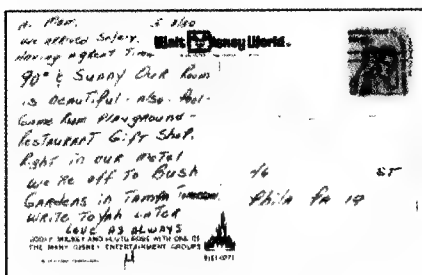 A. Mom. 5 8/80
We arrived safely.
Having a great time
Walt Disney World.
90° & Sunny Our Room
is beautiful - also Pool -
Game Room Playground -
Restaurant Gift Shop.
Right in our Motel
We're off to Bush
Gardens in Tampa Tomorrow.
Write To yah Later
Love as always
ST
Phila PA 19
GOOFY MICKEY AND PLUTO POSE WITH ONE OF
THE MANY DISNEY ENTERTAINMENT GROUPS